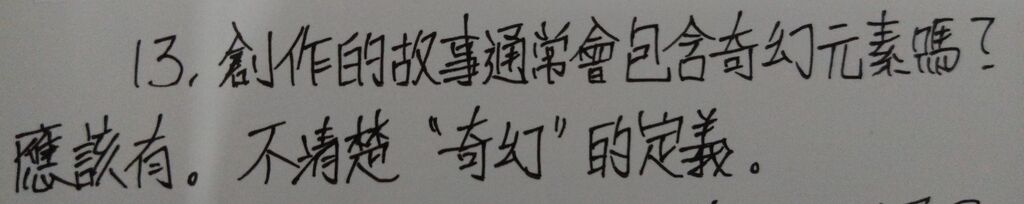 13. 創作的故事通常會包含奇幻元素嗎?
應該有。不清楚“奇幻”的定義。